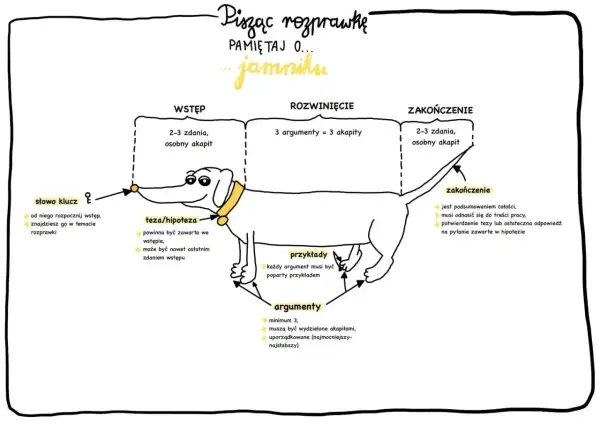 Pisząc rozprawkę
PAMIĘTAJ O...
... jamniku
WSTĘP
ROZWINIĘCIE
ZAKOŃCZENIE
2-3 zdania,
osobny akapit
3 argumenty = 3 akapity
2-3 zdania,
osobny akapit
słowo klucz
od niego rozpocznij wstęp,
znajdziesz go w temacie
rozprawki
teza/hipoteza
powinna być zawarta we
wstępie,
może być nawet ostatnim
zdaniem wstępu
zakończenie
jest podsumowaniem całości,
musi odnosić się do treści pracy,
potwierdzenie tezy lub ostateczna odpowiedź
na pytanie zawarte w hipotezie
przykłady
każdy argument musi być
poparty przykładem
argumenty
minimum 3,
muszą być wydzielone akapitami,
uporządkowane (najmocniejszy-
najsłabszy)